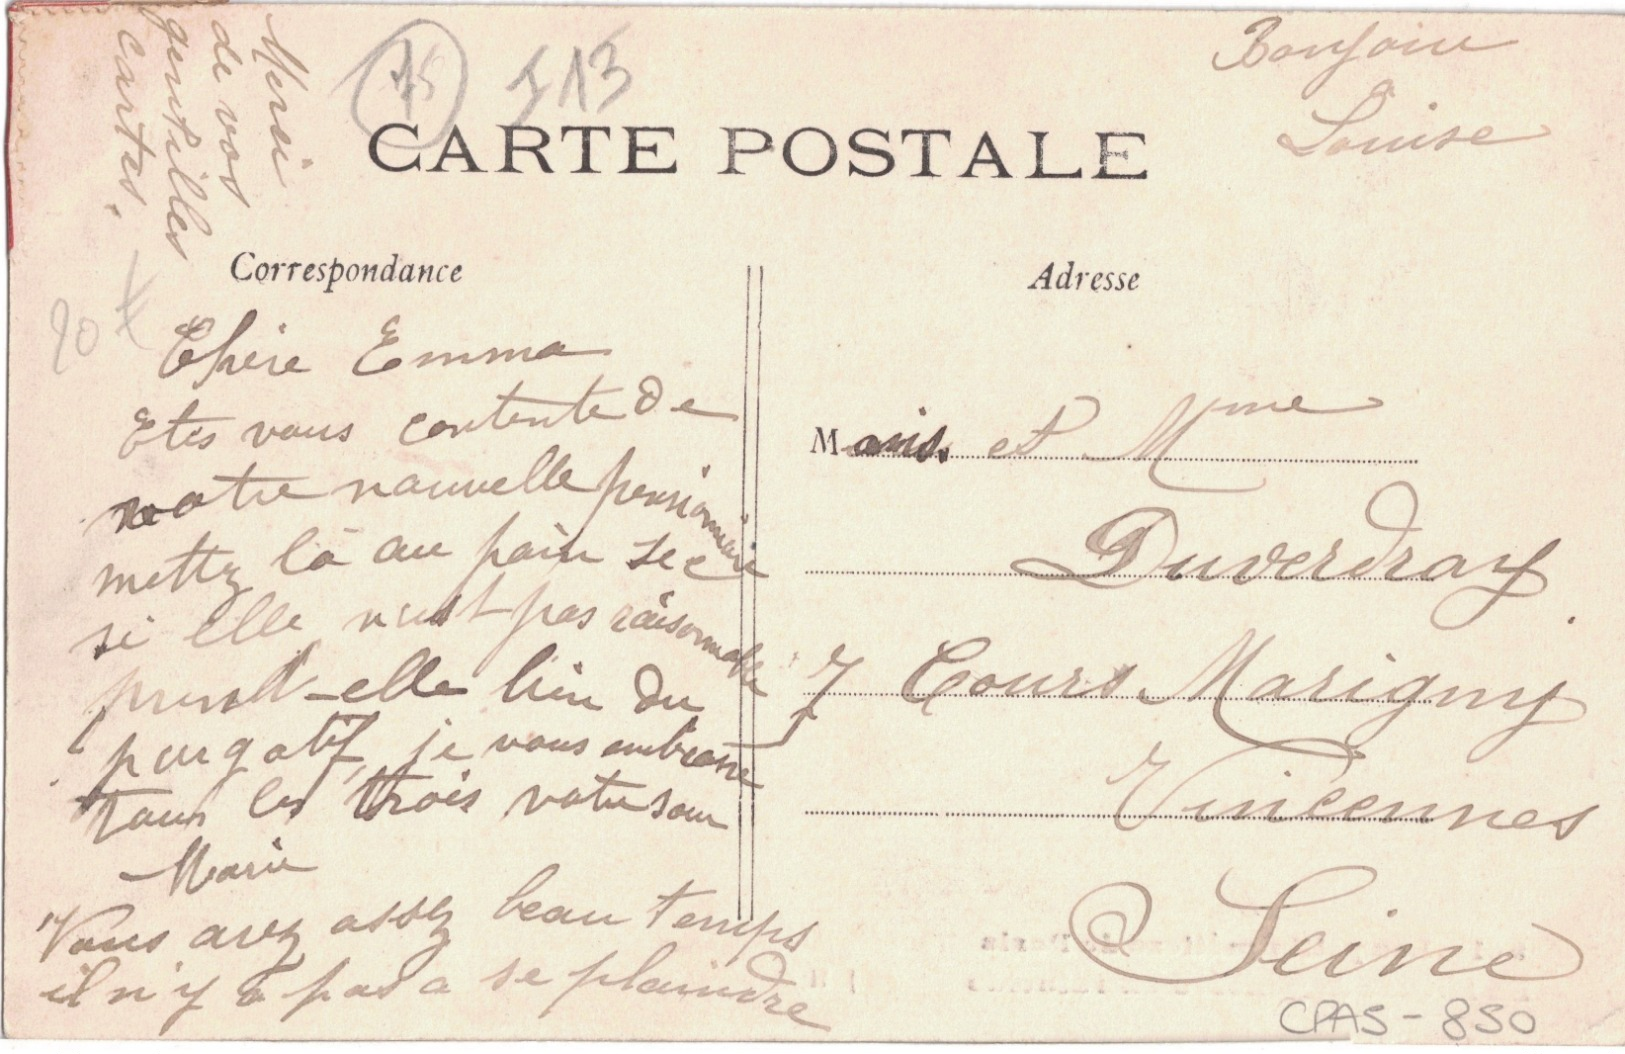 Merci
de vos
gentilles
cartes.
75 J13
Bonjour
Louise
CARTE POSTALE
Correspondance
Adresse
20 F
Chère Emma
Etes vous contente de
votre nouvelle pensionnaire
mettez la au pain sec
si elle n'est pas raisonnable
prend-elle bien du
purgatif, je vous embrasse
tous les trois votre sœur
Marie
Vous avez assez beau temps
il n'y à pas a se plaindre
Mons. et Mme
Duverdray
7 Cours Marigny
Vincennes
Seine
CPAS-850